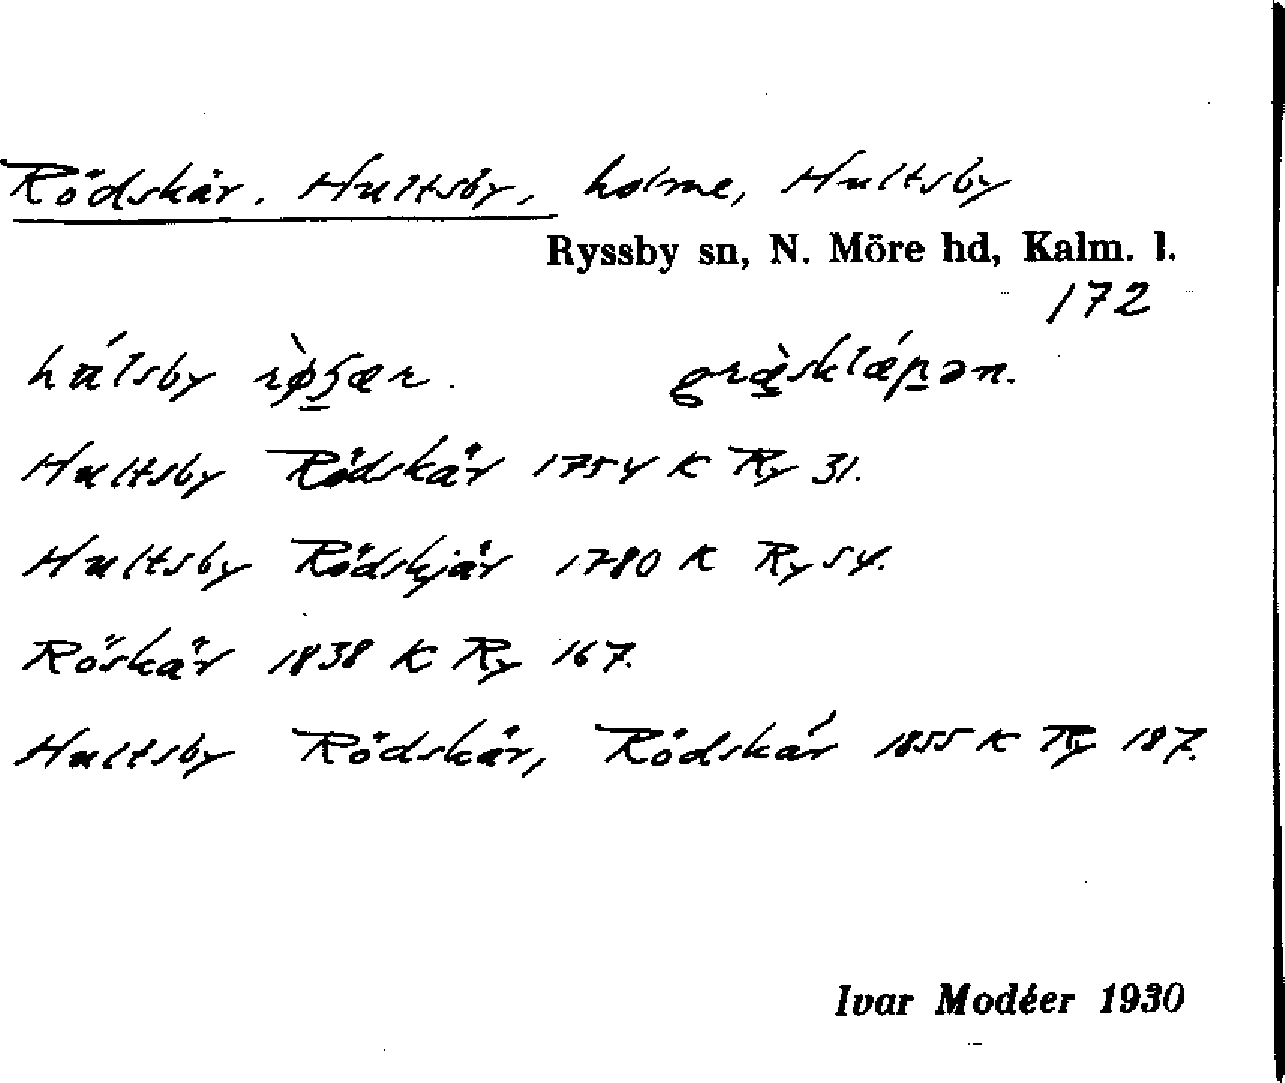 Rödskär, Hultsby, holme, Hultsby
Ryssby sn, N. Möre hd, Kalm. l.
172
Hultsby Rödskär 1754 K Ry 31.
Hultsby Rödskjär 1780 K Ry 54.
Röskär 1838 K Ry 167.
Hultsby Rödskär, Rödskär 1855 K Ry 187.
Ivar Modéer 1930